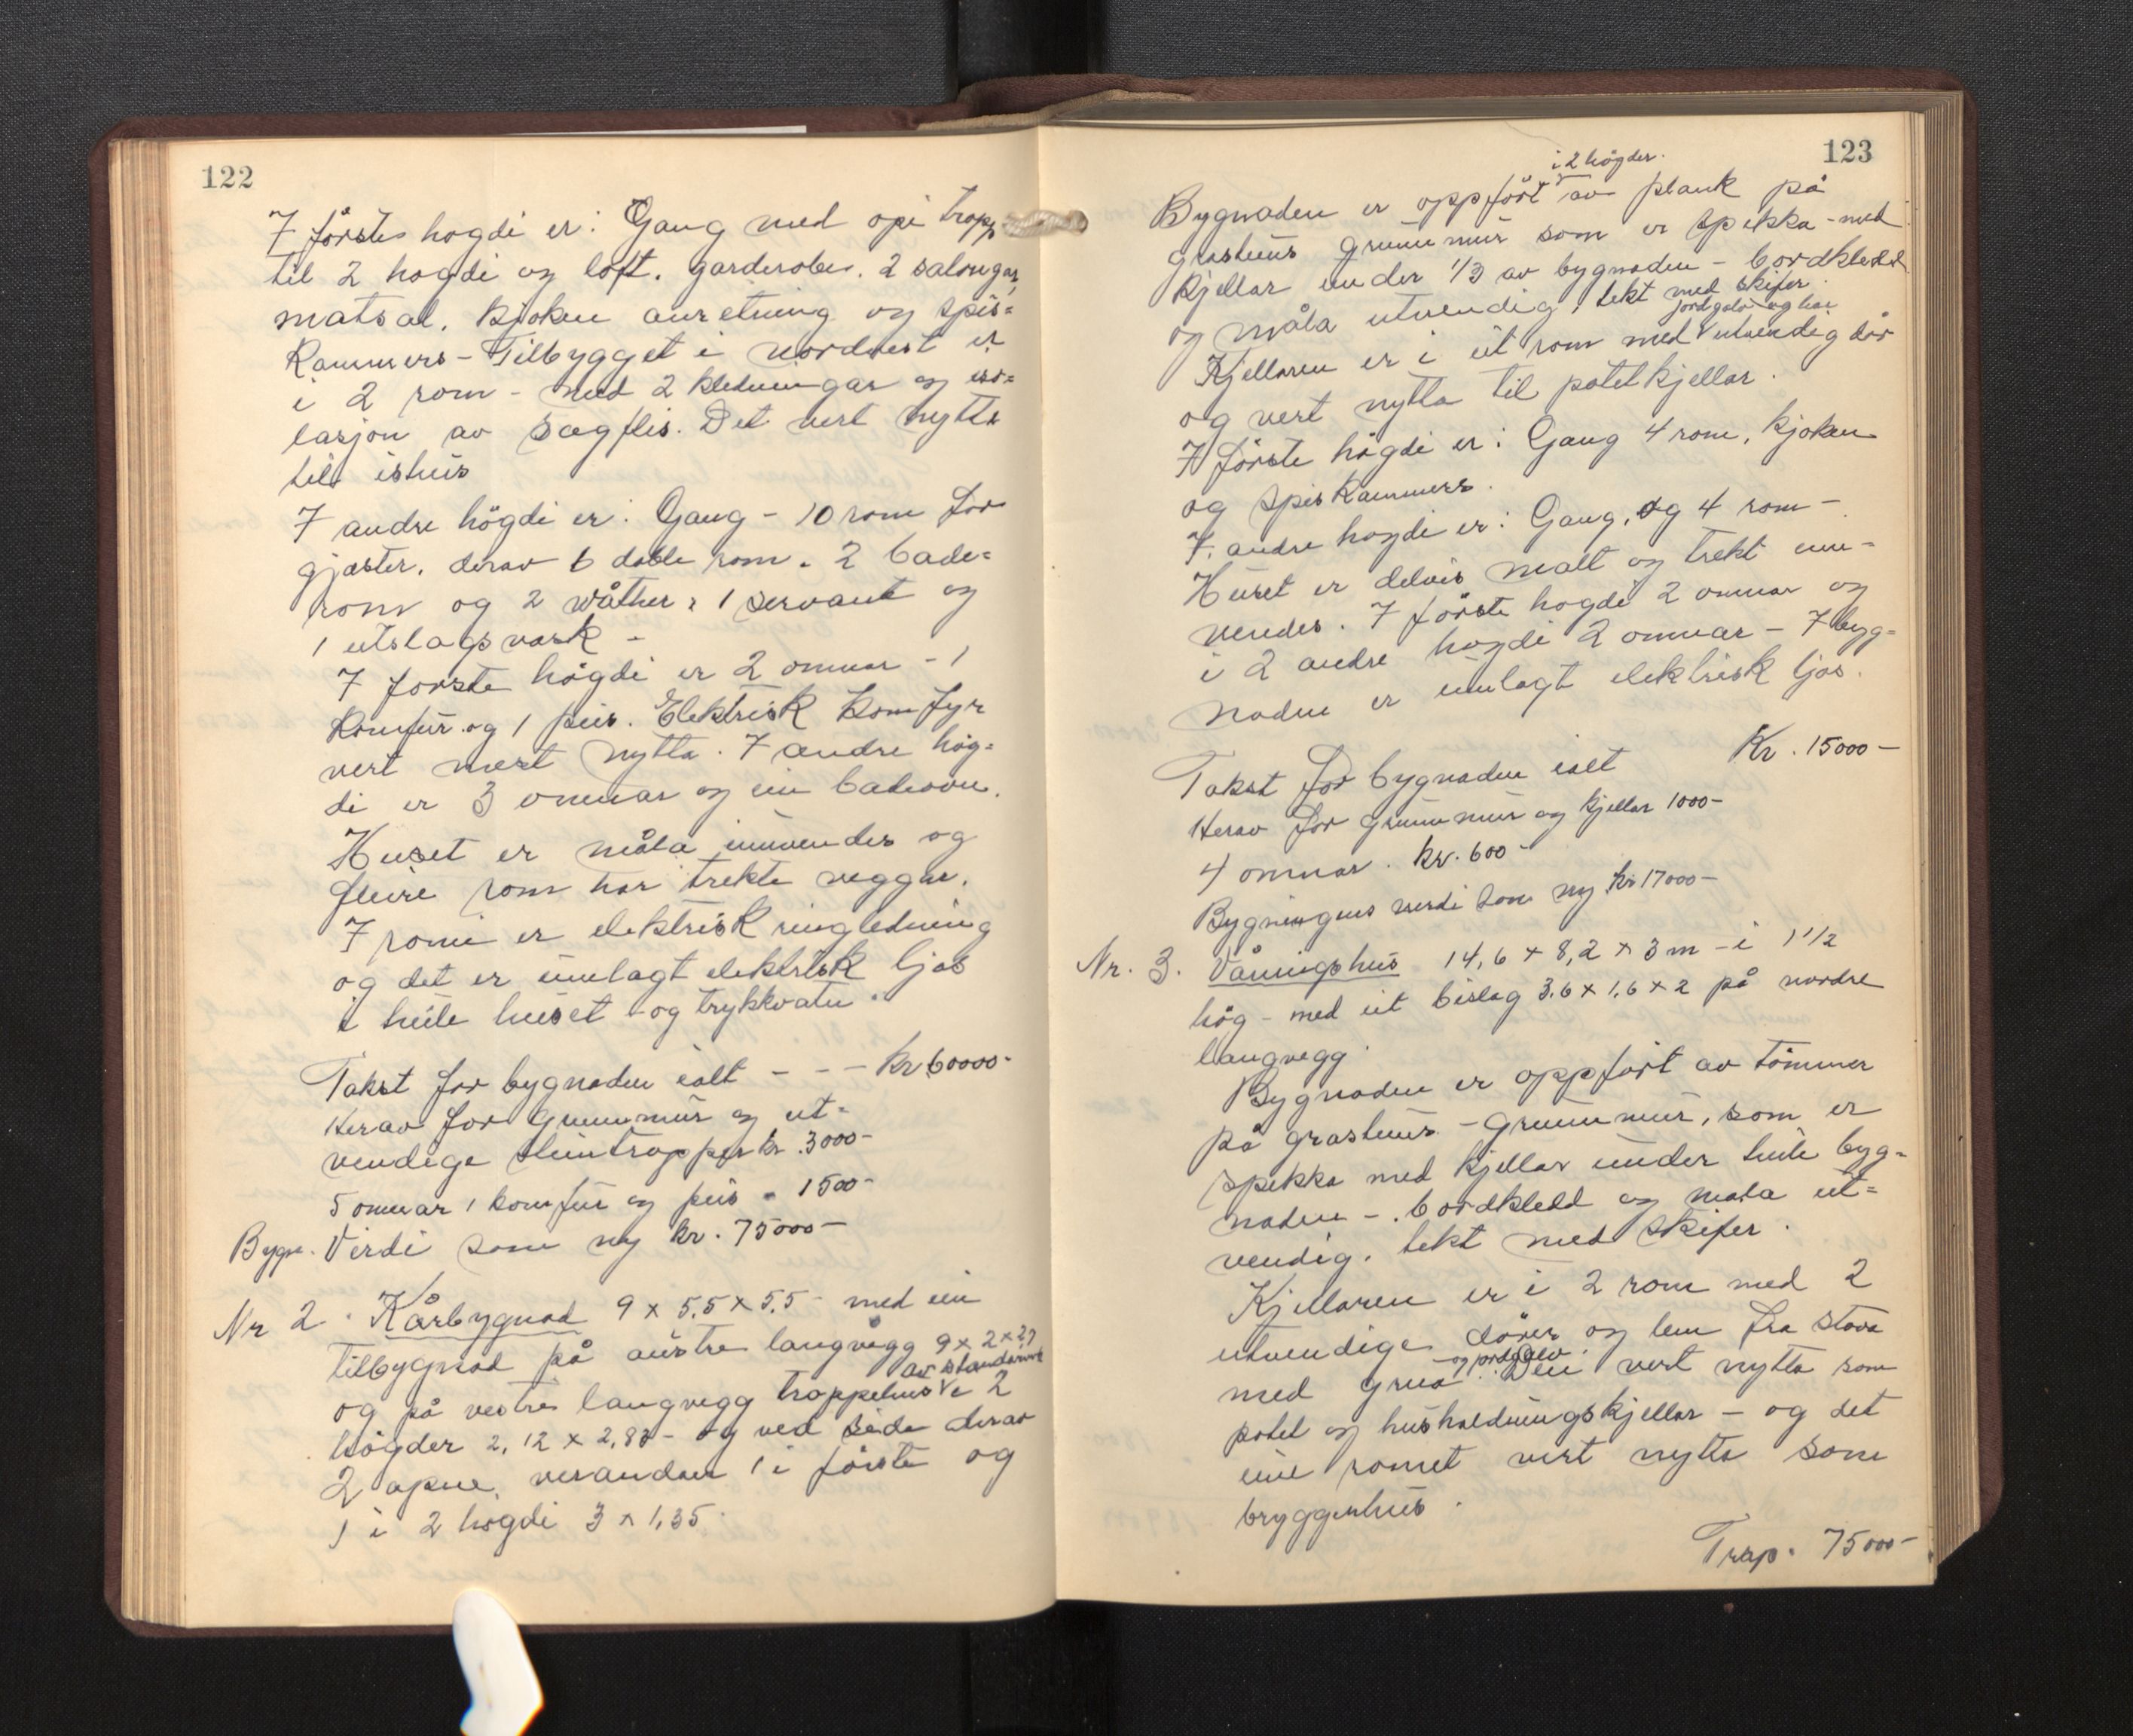 122
I förste hogdi er: Gang med opi trapp
til 2 hogdi og loft. garderobe. 2 salongar,
matsal. Kjøken anretning og spis=
Kammers - Tilbygget i nordvest er
i 2 rom - med 2 kledningar og iso=
lasjon av sagflis. Det vert nytta
til ishus
I andre högdi er: Gang - 10 rom for
gjæster. derav 6 doble rom. 2 bade=
rom og 2 wåther, 1 servant og
1 utslagsvask -
I forste högdi er 2 omnar - 1
Komfür og 1 peis. Elektrisk Komfyr
vert mest nytta. I andre hög=
di er 3 omnar og ein badeovn.
Huset er måla innvendes og
fleire rom har trekte veggar.
I romi er elektrisk ringledning
og det er innlagt elektrisk ljos
i heile huset - og trykkvatn.
Takst for bygnaden ialt - - - kr 60000-
Herav for grunnmur og ut=
vendige steintrapper kr. 3000-
5 omnar 1 komfür og peis " 1500-
Bygn. Verdi som ny kr. 75000-
Nr 2. Kårbygnad 9 x 5,5 x 5,5 - med ein
tilbygnad på austre langvegg 9 x 2 x 2,7
av standarverk
og på vestre langvegg trappehus i 2
högder 2,12 x 2,83 - og ved side derav
2 opne verandaer 1 i förste og
1 i 2 hogdi 3 x 1,35.
123
i 2 högder.
Bygnaden er oppfört av plank på
grasteins grunnmur som er spekka - med
Kjellar under 1/3 av bygnaden - bordkledd
og måla utvendig, tekt med skifer.
jordgolv og har
Kjellaren er i eit rom med utvendig dör
og vert nytta til potetkjellar.
I förste högdi er: Gang 4 rom, kjoken
og spiskammers.
I andre hogdi er: Gang, og 4 rom -
Huset er delvis malt og trekt inn-
vendes. I förste hogdi 2 omnar og
i 2 andre hogdi 2 omnar - I byg=
naden er innlagt elektrisk ljos.
Takst for bygnaden ialt Kr. 15000-
Herav for grunnmur og kjellar 1000-
4 omnar. kr. 600-
Bygningens verdi som ny kr 17000-
Nr. 3. Våningshus 14,6 x 8,2 x 3 m - i 1 1/2
hög - med eit bislag 3.6 x 1,6 x 2 på nordre
langvegg.
Bygnaden er oppfört av tömmer
på grasteins - grunnmur, som er
spekka med kjellar under heile byg=
naden - bordkledd og mala ut=
vendig. tekt med skifer.
Kjellaren er i 2 rom med 2
utvendige dörer og lem fra stova
- og jordgolv.
med grua. Den vert nytta som
potet og husholdningskjellar - og det
eine romet vert nytta som
bryggerhus.
Trap. 75000-